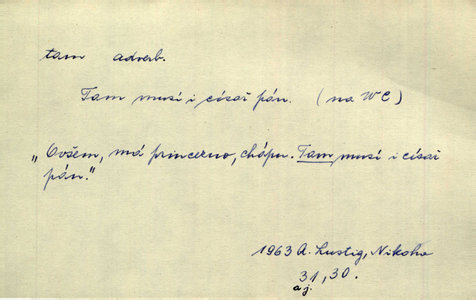 tam adverb.
Tam musí i císař pán. (na WC)
„Ovšem, má princezno, chápu. Tam musí i císař
pán."
1963 A. Lustig, Nikoho
31, 30.
aj.